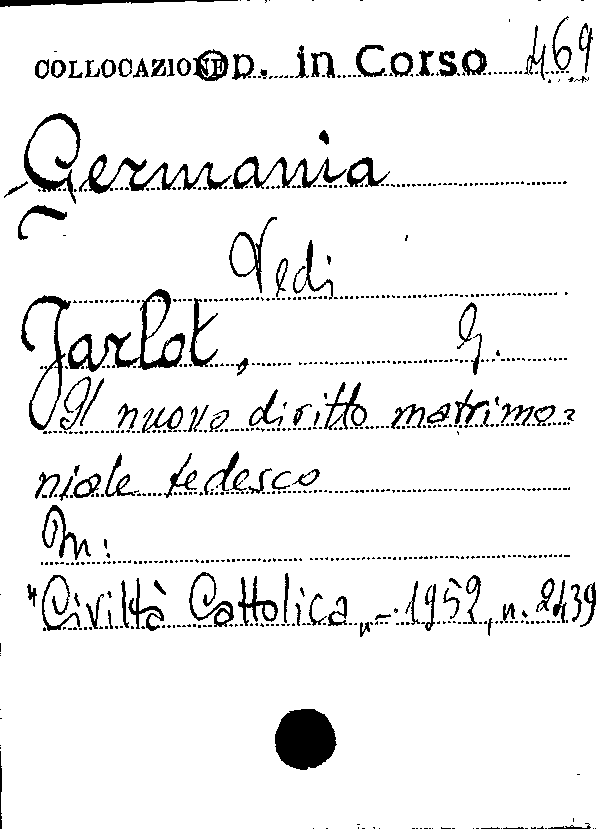 COLLOCAZIONE Op. in Corso 469
Germania
Vedi
Jarlot, G.
Il nuovo diritto matrimo=
niale tedesco
In:
"Civiltà Cattolica„ - 1952, n. 2439